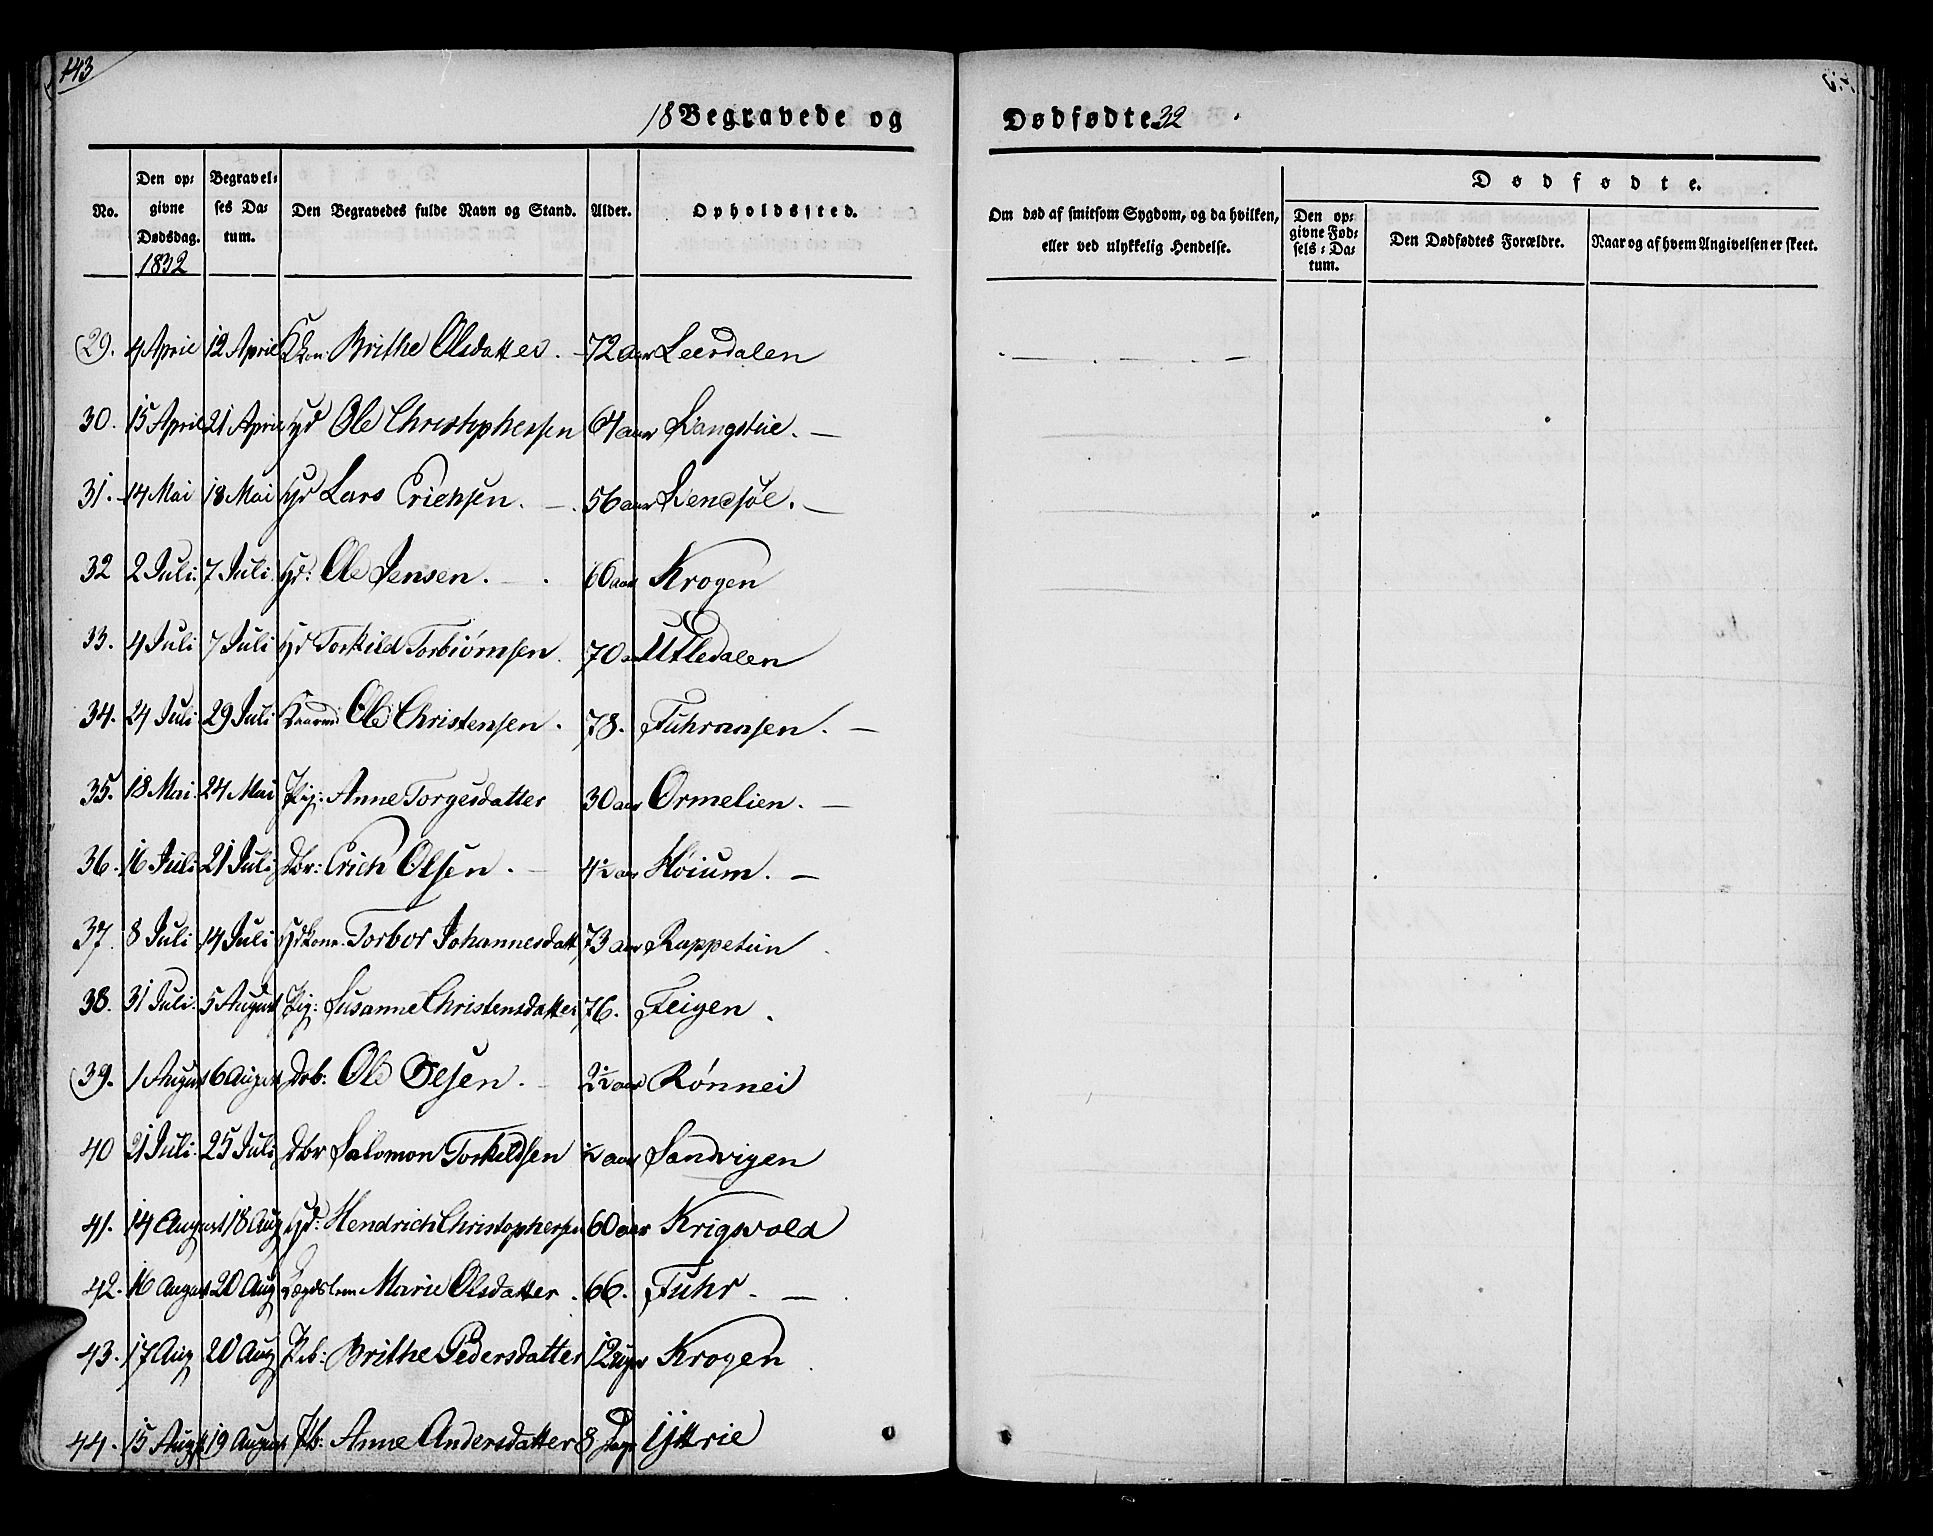 143
18 Begravede og Dødfødte 32.
No.
Den op-
givne
Dødsdag.
1832
Begravel-
ses Da-
tum.
Den Begravedes fulde Navn og Stand.
Alder.
Opholdssted.
Om død af smitsom Sygdom, og da hvilken,
eller ved ulykkelig Hendelse.
Dødfødte.
Den op-
givne Fød-
sels-Da-
tum.
Den Dødfødtes Forældre.
Naar og af hvem Angivelsen er skeet.
29. 4 April 12 April Kkon: Brithe Olsdatter. 72 aar Leerdalen
30. 15 April 21 April Hd Ole Christophersen 64 aar Langstue. —
31. 14 Mai 18 Mai Hd Lars Erichsen. — 56 aar Lendsøe. —
32 2 Juli. 7 Juli. Hd: Ole Jensen. — 66 aar Krogen
33. 4 Juli 7 Juli Hd Torkild Torbiörnsen. 70 aar Utledalen
34. 24 Juli 29 Juli Ole Christensen. 78. Fuhrnæsen. —
35. 18 Mai. 24 Mai Pig: Anne Torgersdatter 30 aar Ormelien. —
36. 16 Juli 21 Juli Dbr: Erich Olsen. — 4½ aar Høium. —
37. 8 Juli 14 Juli Hdkone. Torbor Johannesdatt 73 aar Rappetun
38. 31 Juli. 5 August Pig: Susanne Christensdatter 76. Feigen.
39. 1 August 6 August Drb: Ole Olsen. — 2½ aar Rønnei
40 21 Juli. 25 Juli Dbr Salomon Torkildsen ½ aar Sandvigen
41. 14 August 18 Aug Hd: Hendrich Christophersen 60 aar Krigsvold
42. 16 August 20 Aug Lægdslem Marie Olsdatter. 66. Fuhr. —
43. 17 Aug 20 Aug Pb: Brithe Pedersdatter 12 uger Krogen
44. 15 Augst 19 August Pb: Anne Andersdatter 8 Dage Yttrie